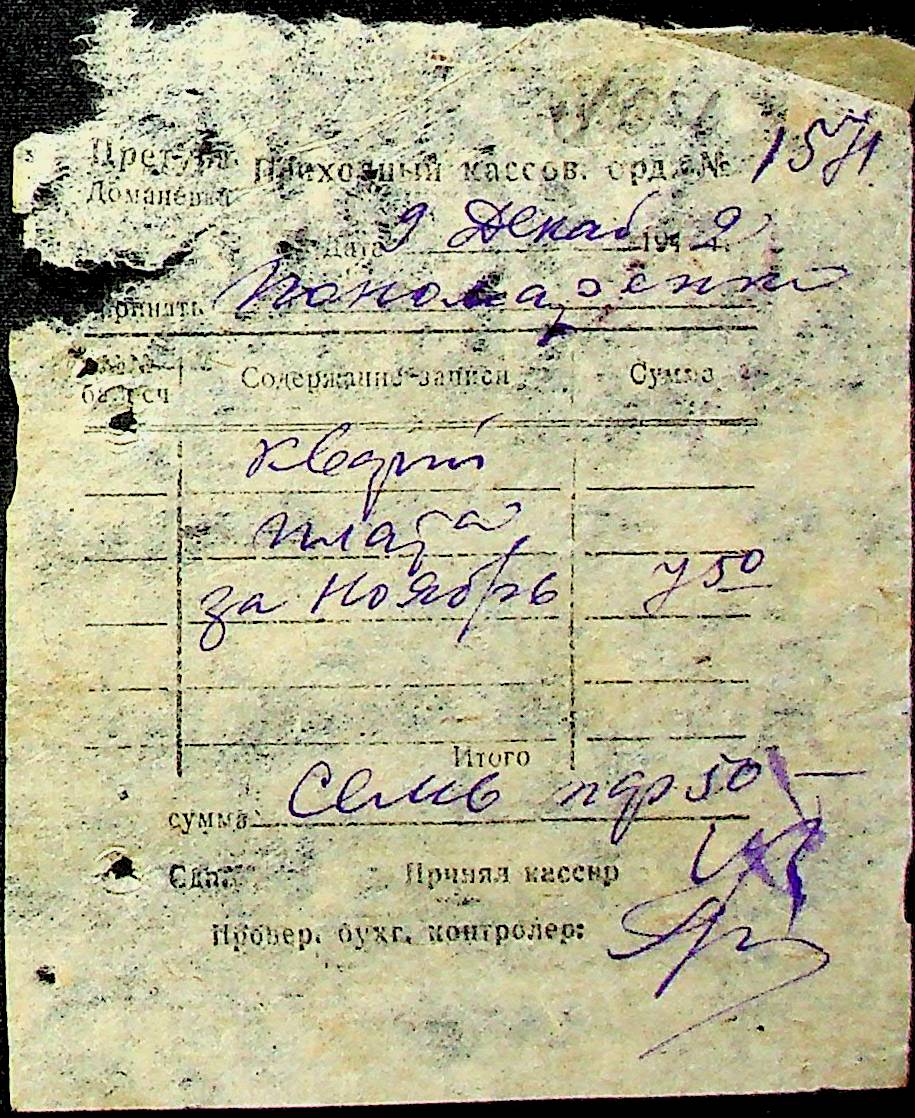 Претура Приходный кассов. орд. № 1571
Доманевка
Дата 9 Декаб 194 2 г.
Принять Пономаренко
№№ бал. сч Содержание записи Сумма
кварт
плата
за Ноябрь 7 50
Итого
сумма Семь 50
Сдал Принял кассир
Провер. бухг. контролер: